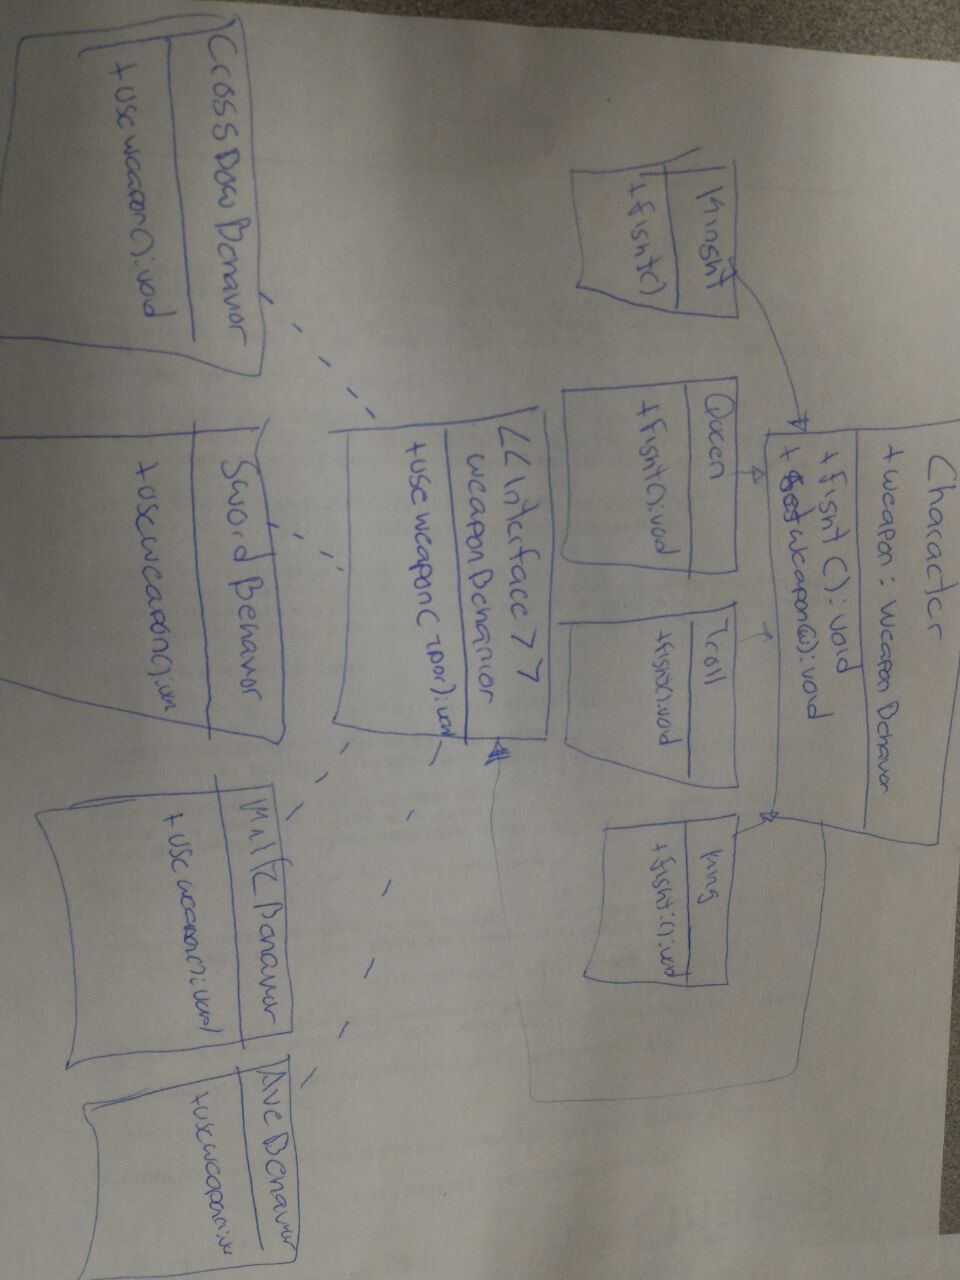 Character
+ weapon : weapon Behavior
+ fight () : void
+ set weapon(w) : void
Knight
+ fight()
Queen
+ fight() : void
Troll
+ fight() : void
King
+ fight:() : void
<<Interface>>
weapon Behavior
+ use weapon( ) : void
Cross Bow Behavior
+ use weapon() : void
Sword Behavior
+ use weapon() : void
Knife Behavior
+ use weapon() : void
Axe Behavior
+ use weapon